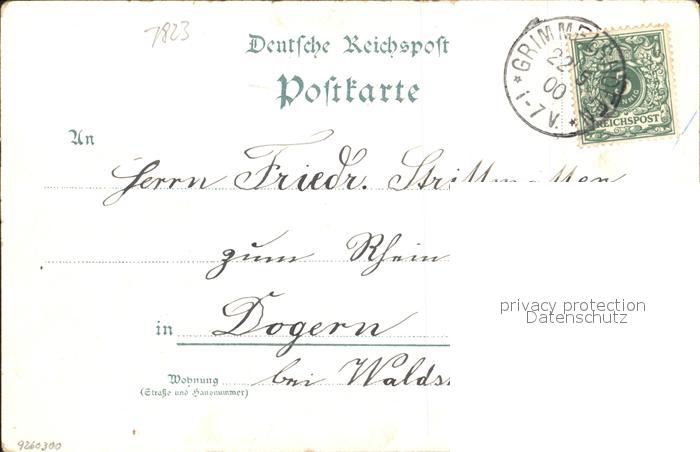 7823
Deutsche Reichspost
Postkarte
GRIMMELSHOFEN
22 5
00
1-7 V.
REICHSPOST
An
Herrn Friedr.
zum Rhein
in Dogern
Wohnung bei Walds
(Straße und Hausnummer)
privacy protection
Datenschutz
9260300